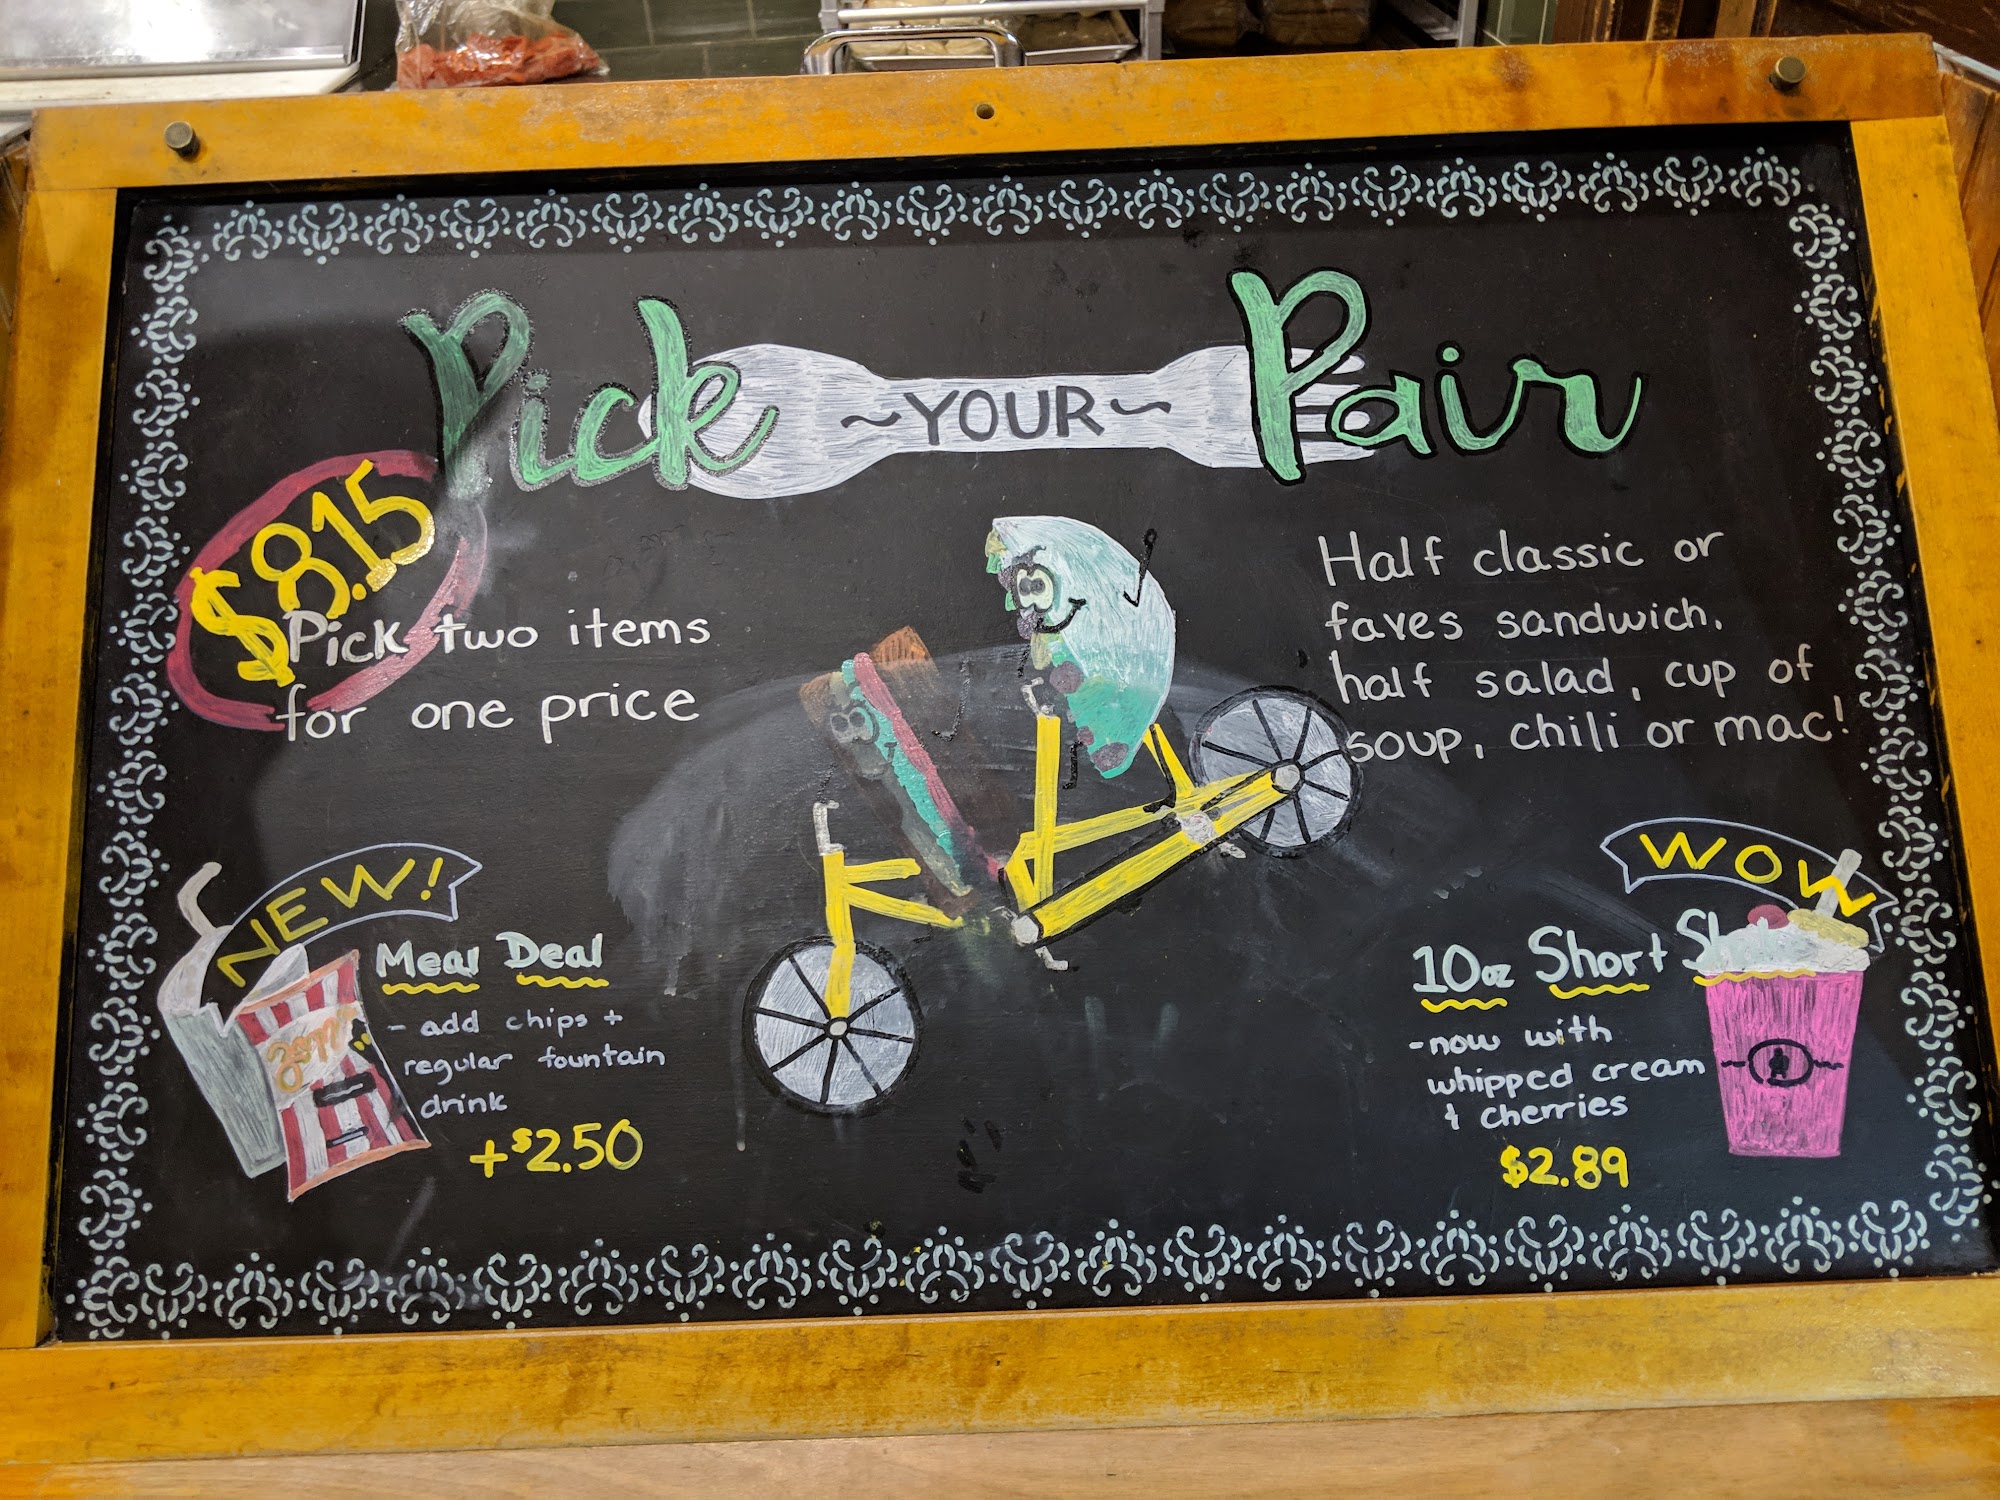 Pick ~YOUR~ Pair
$8.15
Pick two items
for one price
Half classic or
faves sandwich,
half salad, cup of
soup, chili or mac!
NEW!
Meal Deal
- add chips +
regular fountain
drink
+$2.50
WOW
10oz Short
-now with
whipped cream
& cherries
$2.89